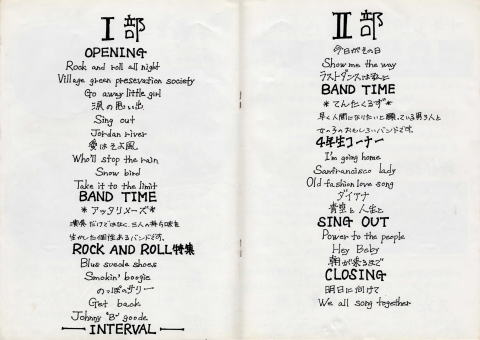 I部
OPENING
Rock and roll all night
Village green presevation society
Go away little girl
涙の思い出
Sing out
Jordan river
愛はそよ風
Who'll stop the rain
Snow bird
Take it to the limit
BAND TIME
*アッタリメーズ*
演奏だけではなく、三人の持ち味を
生かした個性あるバンドです。
ROCK AND ROLL特集
Blue suede shoes
Smokin' boogie
のっぽのサリー
Get back
Johnny "B" goode
INTERVAL
II部
今日がその日
Show me the way
ラストダンスは私に
BAND TIME
*てんたくるず*
早く人間になりたいと願っている男3人と
女の子のおもしろいバンドです。
4年生コーナー
I'm going home
Sanfrancisco lady
Old fashion love song
ダイアナ
青空と人生と
SING OUT
Power to the people
Hey Baby
朝が来るまで
CLOSING
明日に向けて
We all song together